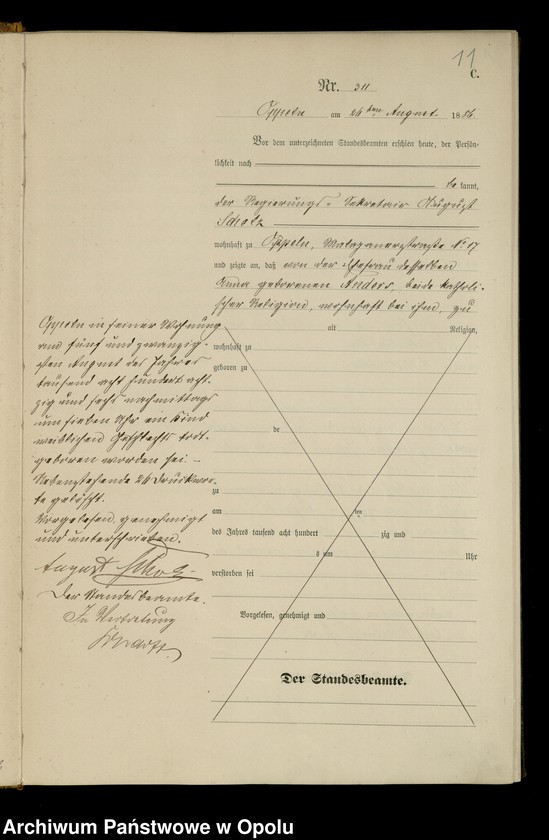 11
C.
Nr. 311
Oppeln am 26ten August 1886
Vor dem unterzeichneten Standesbeamten erschien heute, der Persön-
lichkeit nach
be kannt,
der Regierungs-Sekretair August
Scholz
wohnhaft zu Oppeln, Malapanerstraße No 17
und zeigte an, daß von der Ehefrau desselben
Anna geborenen Anders, beide katholi-
scher Religion, wohnhaft bei ihm, zu
Oppeln in seiner Wohnung
am fünf und zwanzig-
sten August des Jahres
tausend acht hundert acht-
zig und sechs nachmittags
um sieben Uhr ein Kind
weiblichen Geschlechts todt-
geboren worden sei. –
Nebenstehende 26 Druckwor-
te gelöscht.
Vorgelesen, genehmigt
und unterschrieben.
August Scholz
Der Standesbeamte.
In Vertretung
alt Religion,
wohnhaft zu
geboren zu
de
zu
am ten
des Jahres tausend acht hundert zig und
s um Uhr
verstorben sei
Vorgelesen, genehmigt und
Der Standesbeamte.
Archiwum Państwowe w Opolu